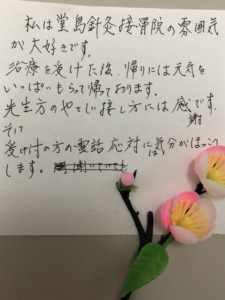 私は堂島針灸接骨院の雰囲気
が大好きです。
治療を受けた後、帰りには元気を
いっぱいもらって帰っております。
先生方のやさしい接し方には感謝です。
そして
受け付の方の電話応対には気分がほっこり
します。